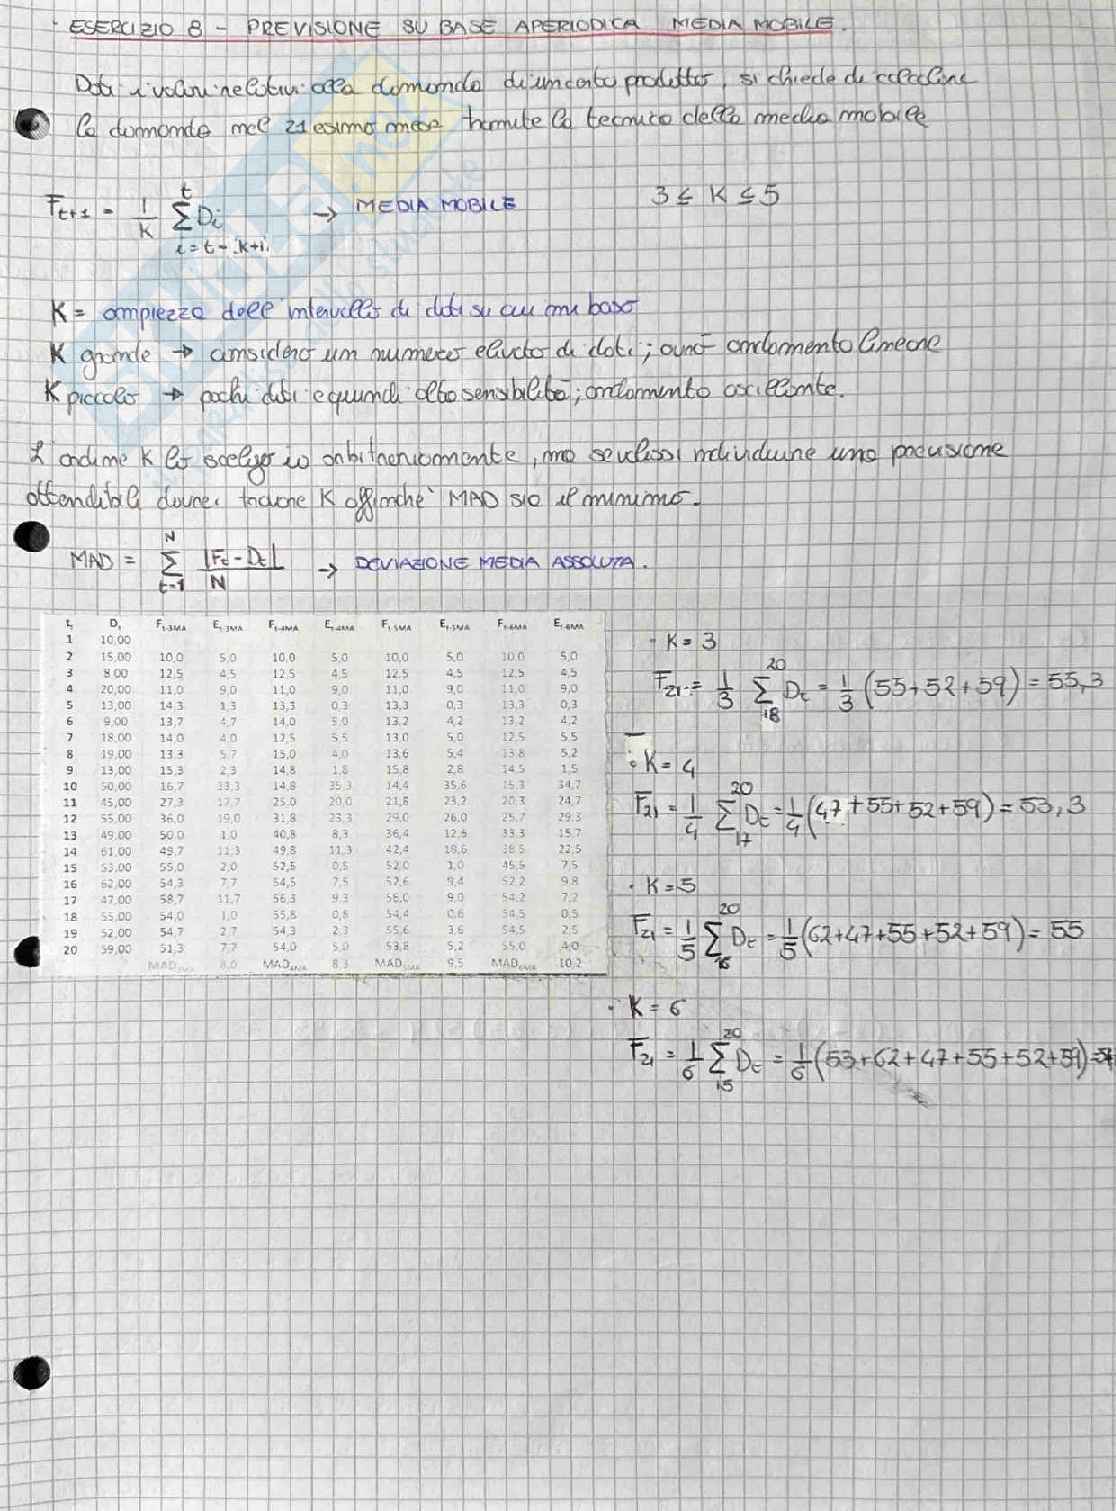 ESERCIZIO 8 - PREVISIONE SU BASE APERIODICA MEDIA MOBILE.
Dati i valori relativi alla domanda di un certo prodotto, si chiede di calcolare
la domanda nel 21 esimo mese tramite la tecnica della media mobile
F_{t+1} = 1/K Σ_{i=t-k+1}^{t} D_i → MEDIA MOBILE 3 ≤ K ≤ 5
K = ampiezza dell'intervallo di dati su cui mi baso
K grande → considero un numero elevato di dati; avrò andamento lineare
K piccolo → pochi dati e quindi alta sensibilità; andamento oscillante.
L'ordine K lo scelgo io arbitrariamente, ma se volessi individuare una previsione
attendibile dovrei trovare K affinché MAD sia il minimo.
MAD = Σ_{t=1}^{N} |F_t - D_t| / N → DEVIAZIONE MEDIA ASSOLUTA.
t, D, F_{t-3MA} E_{t-3MA} F_{t-4MA} E_{t-4MA} F_{t-5MA} E_{t-5MA} F_{t-6MA} E_{t-6MA}
1 10,00
2 15,00 10,0 5,0 10,0 5,0 10,0 5,0 10,0 5,0
3 8,00 12,5 4,5 12,5 4,5 12,5 4,5 12,5 4,5
4 20,00 11,0 9,0 11,0 9,0 11,0 9,0 11,0 9,0
5 13,00 14,3 1,3 13,3 0,3 13,3 0,3 13,3 0,3
6 9,00 13,7 4,7 14,0 5,0 13,2 4,2 13,2 4,2
7 18,00 14,0 4,0 12,5 5,5 13,0 5,0 12,5 5,5
8 19,00 13,3 5,7 15,0 4,0 13,6 5,4 13,8 5,2
9 13,00 15,3 2,3 14,8 1,8 15,8 2,8 14,5 1,5
10 50,00 16,7 33,3 14,8 35,3 14,4 35,6 15,3 34,7
11 45,00 27,3 17,7 25,0 20,0 21,8 23,2 20,3 24,7
12 55,00 36,0 19,0 31,8 23,3 29,0 26,0 25,7 29,3
13 49,00 50,0 1,0 40,8 8,3 36,4 12,6 33,3 15,7
14 61,00 49,7 11,3 49,8 11,3 42,4 18,6 38,5 22,5
15 53,00 55,0 2,0 52,5 0,5 52,0 1,0 45,5 7,5
16 62,00 54,3 7,7 54,5 7,5 52,6 9,4 52,2 9,8
17 47,00 58,7 11,7 56,3 9,3 56,0 9,0 54,2 7,2
18 55,00 54,0 1,0 55,8 0,8 54,4 0,6 54,5 0,5
19 52,00 54,7 2,7 54,3 2,3 55,6 3,6 54,5 2,5
20 59,00 51,3 7,7 54,0 5,0 53,8 5,2 55,0 4,0
MAD_{3MA} 8,0 MAD_{4MA} 8,3 MAD_{5MA} 9,5 MAD_{6MA} 10,2
· K = 3
F_{21} = 1/3 Σ_{18}^{20} D_t = 1/3 (55+52+59) = 55,3
· K = 4
F_{21} = 1/4 Σ_{17}^{20} D_t = 1/4 (47+55+52+59) = 53,3
· K = 5
F_{21} = 1/5 Σ_{16}^{20} D_t = 1/5 (62+47+55+52+59) = 55
· K = 6
F_{21} = 1/6 Σ_{15}^{20} D_t = 1/6 (53+62+47+55+52+59) =